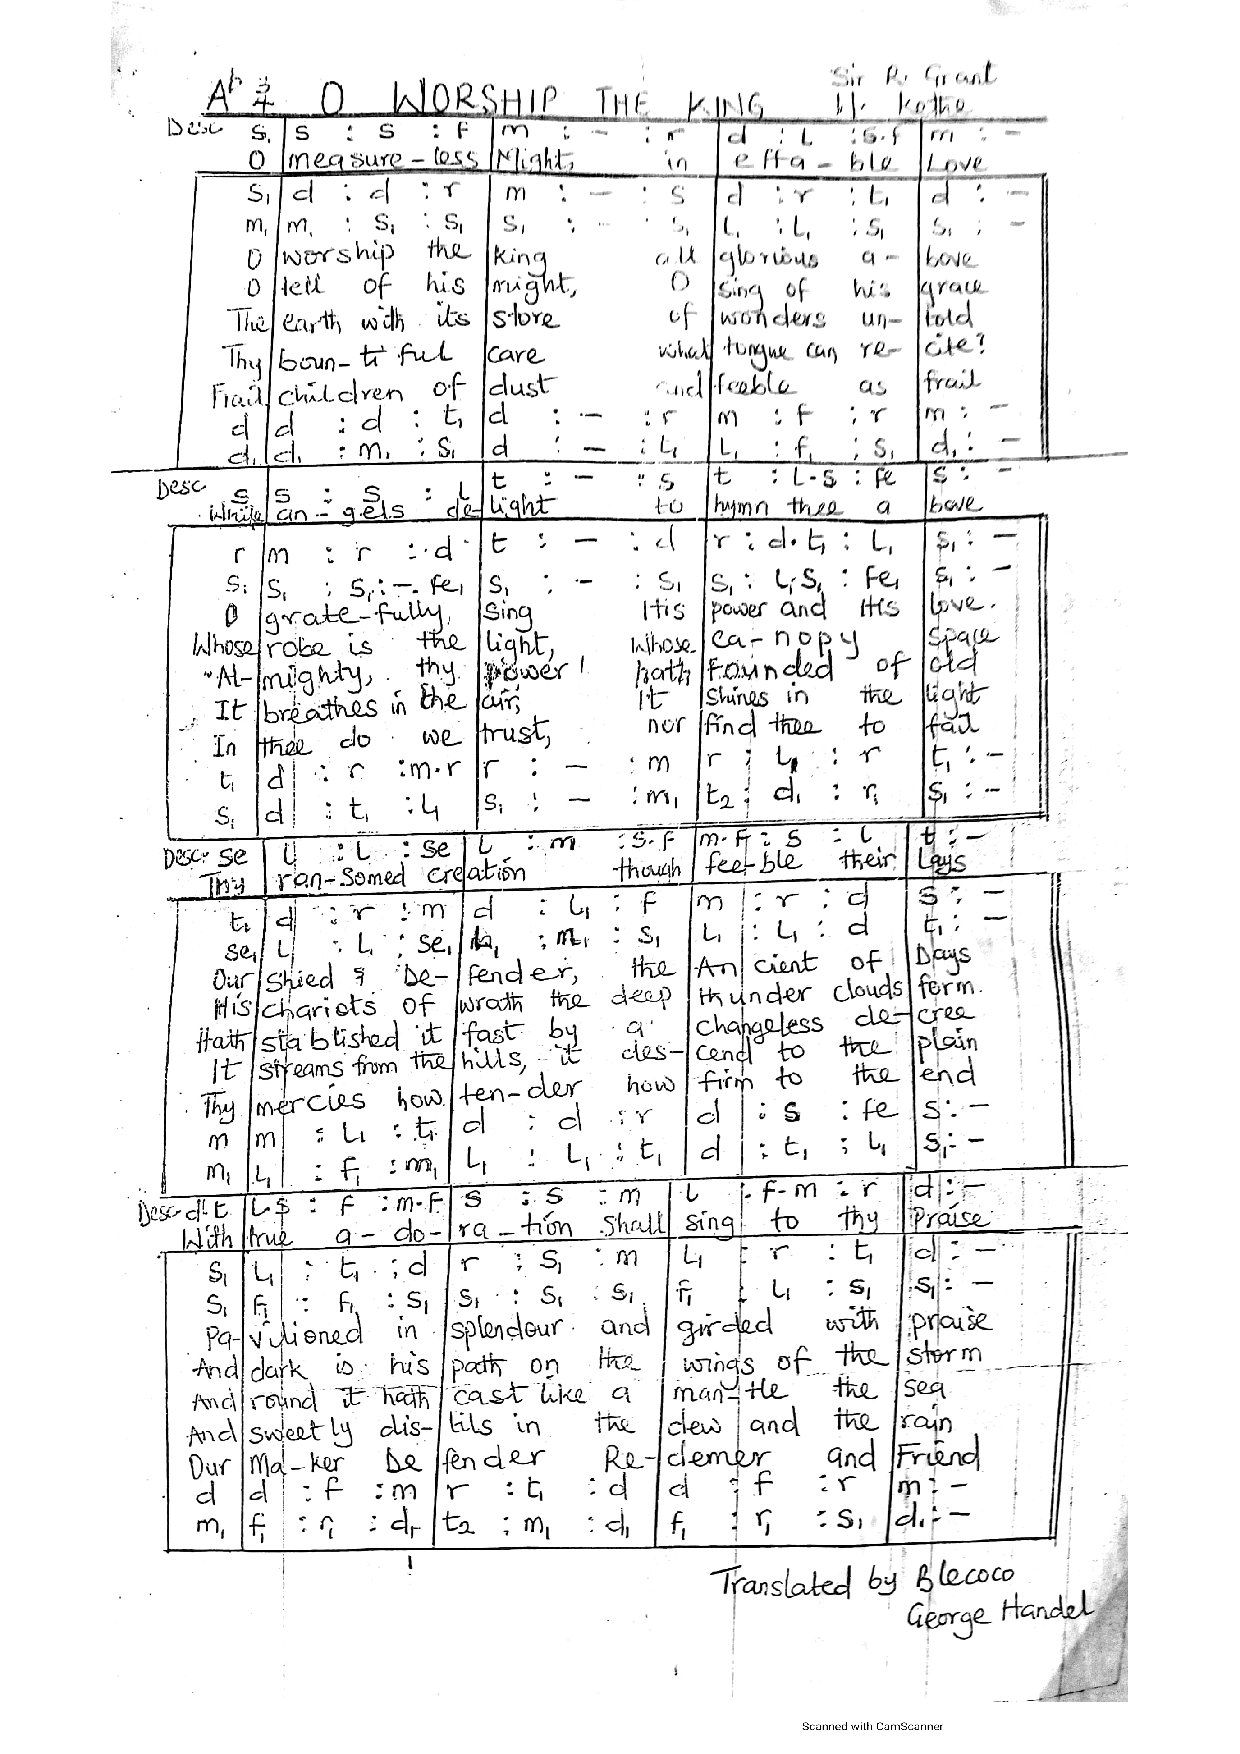 Ab 3/4 O WORSHIP THE KING Sir R. Grant
W. Kothe
Desc s₁ | s : s : f | m : - : r | d : L : s.f | m : -
O | measure-less | Might, in | effa-ble | Love
s₁ | d : d : r | m : - : s | d : r : t₁ | d : -
m₁ | m₁ : s₁ : s₁ | s₁ : - : s₁ | L₁ : L₁ : s₁ | s₁ : -
O | worship the | king all | glorious a- | bove
O | tell of his | might, O | sing of his | grace
The | earth with its | store of | wonders un- | told
Thy | boun-ti ful | care what | tongue can re- | cite?
Frail | children of | dust and | feeble as | frail
d | d : d : t₁ | d : - : r | m : f : r | m : -
d₁ | d₁ : m₁ : s₁ | d : - : L₁ | L₁ : f₁ : s₁ | d₁ : -
Desc s | s : s : L | t : - : s | t : L.s : fe | s : -
While | an-gels de- | light to | hymn thee a | bove
r | m : r : .d | t : - : d | r : d.t₁ : L₁ | s₁ : -
s₁ | s₁ : s₁ : -. fe₁ | s₁ : - : s₁ | s₁ : L₁S₁ : fe₁ | s₁ : -
O | grate-fully, | sing His | power and His | love.
Whose | robe is the | light, whose | ca-nopy | space
"Al- | mighty, thy | power! hath | Founded of | old
It | breathes in the | air; it | shines in the | light
In | thee do we | trust, nor | find thee to | fail
t₁ | d : r : m.r | r : - : m | r : L₁ : r | t₁ : -
s₁ | d : t₁ : L₁ | s₁ : - : m₁ | t₂ : d₁ : r₁ | s₁ : -
Desc. se | L : L : se | L : m : s.f | m.f : s : L | t : -
Thy | ran-somed cre | ation though | fee-ble their | Lays
t₁ | d : r : m | d : L₁ : f | m : r : d | s : -
se₁ | L₁ : L₁ : se₁ | la₁ : m₁ : s₁ | L₁ : L₁ : d | t₁ : -
Our | Shied & De- | fender, the | An cient of | Days
His | chariots of | wrath the deep | thunder clouds | form.
Hath | stablished it | fast by a | changeless de- | cree
It | streams from the | hills, it des- | cend to the | plain
Thy | mercies how | ten-der how | firm to the | end
m | m : L₁ : t₁ | d : d : r | d : s : fe | s : -
m₁ | L₁ : f₁ : m₁ | L₁ : L₁ : t₁ | d : t₁ : L₁ | s₁ : -
Desc d'.t | L.s : f : m.f | s : s : m | L : f-m : r | d : -
With | true a-do- | ra-tion Shall | sing to thy | Praise
s₁ | L₁ : t₁ : d | r : s₁ : m | L₁ : r : t₁ | d : -
s₁ | f₁ : f₁ : s₁ | s₁ : s₁ : s₁ | f₁ : L₁ : s₁ | s₁ : -
Pa- | vilioned in | splendour and | girded with | praise
And | dark is his | path on the | wings of the | storm
And | round it hath | cast like a | man-tle the | sea
And | sweetly dis- | tils in the | dew and the | rain
Our | Ma-ker De | fender Re- | demer and | Friend
d | d : f : m | r : t₁ : d | d : f : r | m : -
m₁ | f₁ : r₁ : d₁ | t₂ : m₁ : d₁ | f₁ : r₁ : s₁ | d₁ : -
Translated by Blecoco
George Handel
Scanned with CamScanner